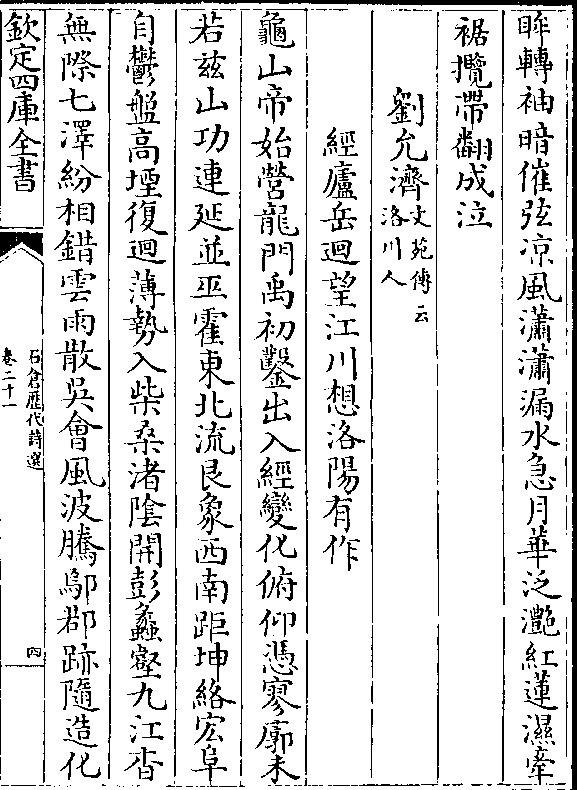 眸轉袖暗催弦凉風瀟瀟漏水急月華泛灔紅蓮濕牽
裾攬帶翻成泣
劉允濟文苑傳云洛川人
經廬岳迴望江川想洛陽有作
龜山帝始營龍門禹初鑿出入經變化俯仰憑寥廓未
若兹山功連延並巫霍東北流艮象西南距坤絡宏阜
自鬱盤高堙復迴薄勢入柴桑渚陰開彭蠡壑九江杳
無際七澤紛相錯雲雨散吳會風波騰鄢郡跡隨造化
欽定四庫全書
石倉歷代詩選
卷二十一
四